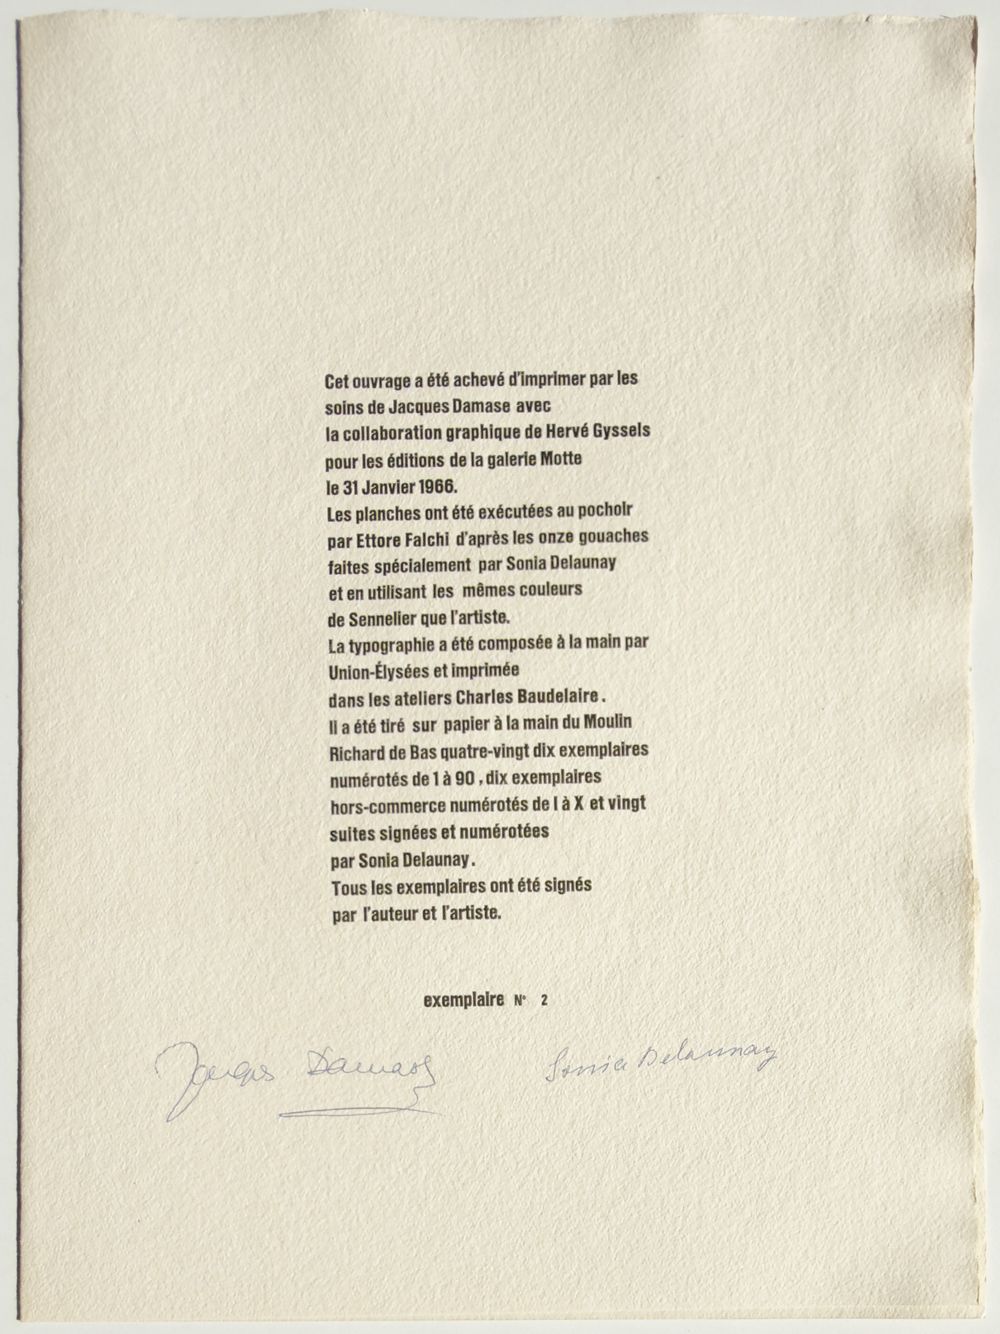 Cet ouvrage a été achevé d'imprimer par les
soins de Jacques Damase avec
la collaboration graphique de Hervé Gyssels
pour les éditions de la galerie Motte
le 31 Janvier 1966.
Les planches ont été exécutées au pochoir
par Ettore Falchi d'après les onze gouaches
faites spécialement par Sonia Delaunay
et en utilisant les mêmes couleurs
de Sennelier que l'artiste.
La typographie a été composée à la main par
Union-Élysées et imprimée
dans les ateliers Charles Baudelaire.
Il a été tiré sur papier à la main du Moulin
Richard de Bas quatre-vingt dix exemplaires
numérotés de 1 à 90, dix exemplaires
hors-commerce numérotés de I à X et vingt
suites signées et numérotées
par Sonia Delaunay.
Tous les exemplaires ont été signés
par l'auteur et l'artiste.
exemplaire N° 2
Jacques Damase Sonia Delaunay